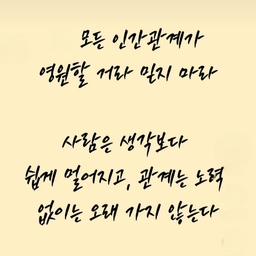 모든 인간관계가
영원할 거라 믿지 마라
사람은 생각보다
쉽게 멀어지고, 관계는 노력
없이는 오래 가지 않는다